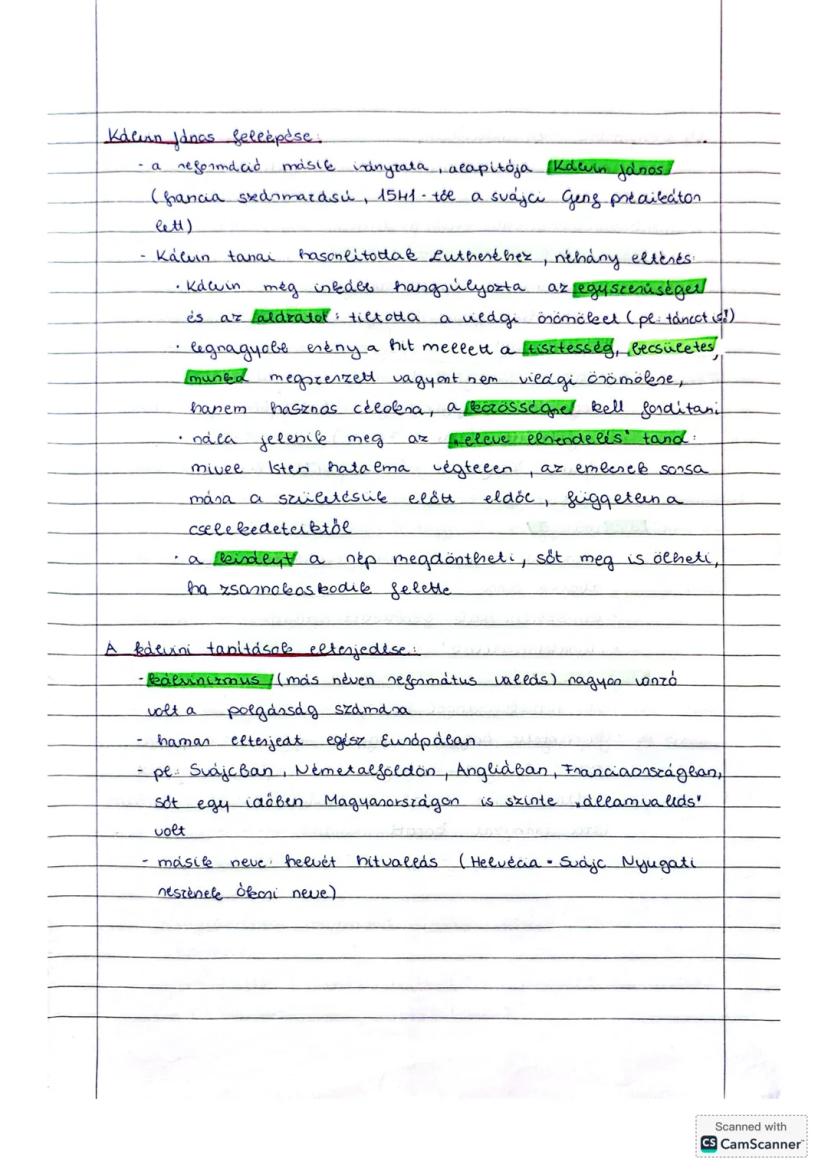 Kálvin János fellépése:
- a reformáció másik irányzata, alapítója Kálvin János
(francia származású, 1541-től a svájci Genf prédikátor
lett)
- Kálvin tanai hasonlítottak Lutheréhez, néhány eltérés:
· Kálvin még inkább hangsúlyozta az egyszerűséget
és az alázatot: tiltotta a világi örömöket (pl: táncot is!)
· legnagyobb erény a hit mellett a tisztesség, becsületes
munka megszerzett vagyont nem világi örömökre,
hanem hasznos célokra, a közösségre kell fordítani
· nála jelenik meg az „eleve elrendelés" tana:
mivel Isten hatalma végtelen, az emberek sorsa
mára a születésük előtt eldől, függetlena
cselekedeteiktől
· a királyt a nép megdöntheti, sőt meg is ölheti,
ha zsarnokoskodik felette
A kálvini tanítások elterjedése:
- kálvinizmus (más néven református vallás) nagyon vonzó
volt a polgárság számára
- hamar elterjedt egész Európában
- pl: Svájcban, Németalföldön, Angliában, Franciaországban,
sőt egy időben Magyarországon is szinte „államvallás"
volt
- másik neve: helvét hitvallás (Helvécia = Svájc Nyugati
részének ókori neve)
Scanned with
CS CamScanner